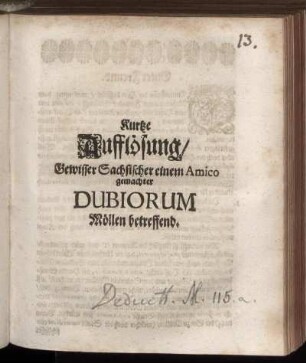 13.
Kurtze
Aufflösung/
Gewisser Sachsischer einem Amico
gewachter
DUBIORUM
Möllen betreffend.
Deductt. M. 115.a.